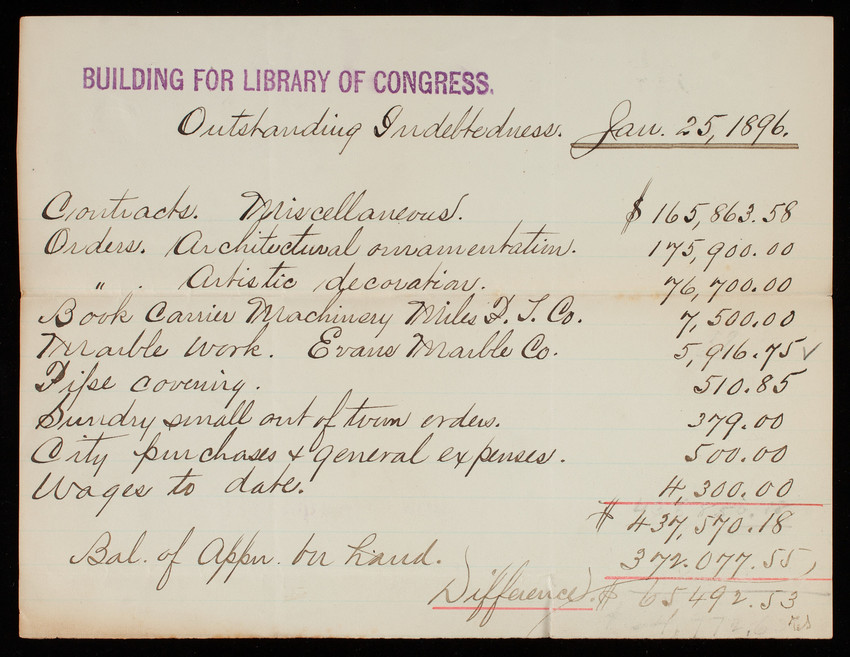 BUILDING FOR LIBRARY OF CONGRESS.
Outstanding Indebtedness. Jan. 25, 1896.
Contracts. Miscellaneous. $ 165,863.58
Orders. Architectural ornamentation. 175,900.00
" . Artistic decoration. 76,700.00
Book Carrier Machinery Miles P. T. Co. 7,500.00
Marble Work. Evans Marble Co. 5,916.75 ✓
Pipe covering. 510.85
Sundry small out of town orders. 379.00
City purchases & general expenses. 500.00
Wages to date. 4,300.00
$ 437,570.18
Bal. of Appn. on hand. 372.077.55
Difference. $ 65492.53